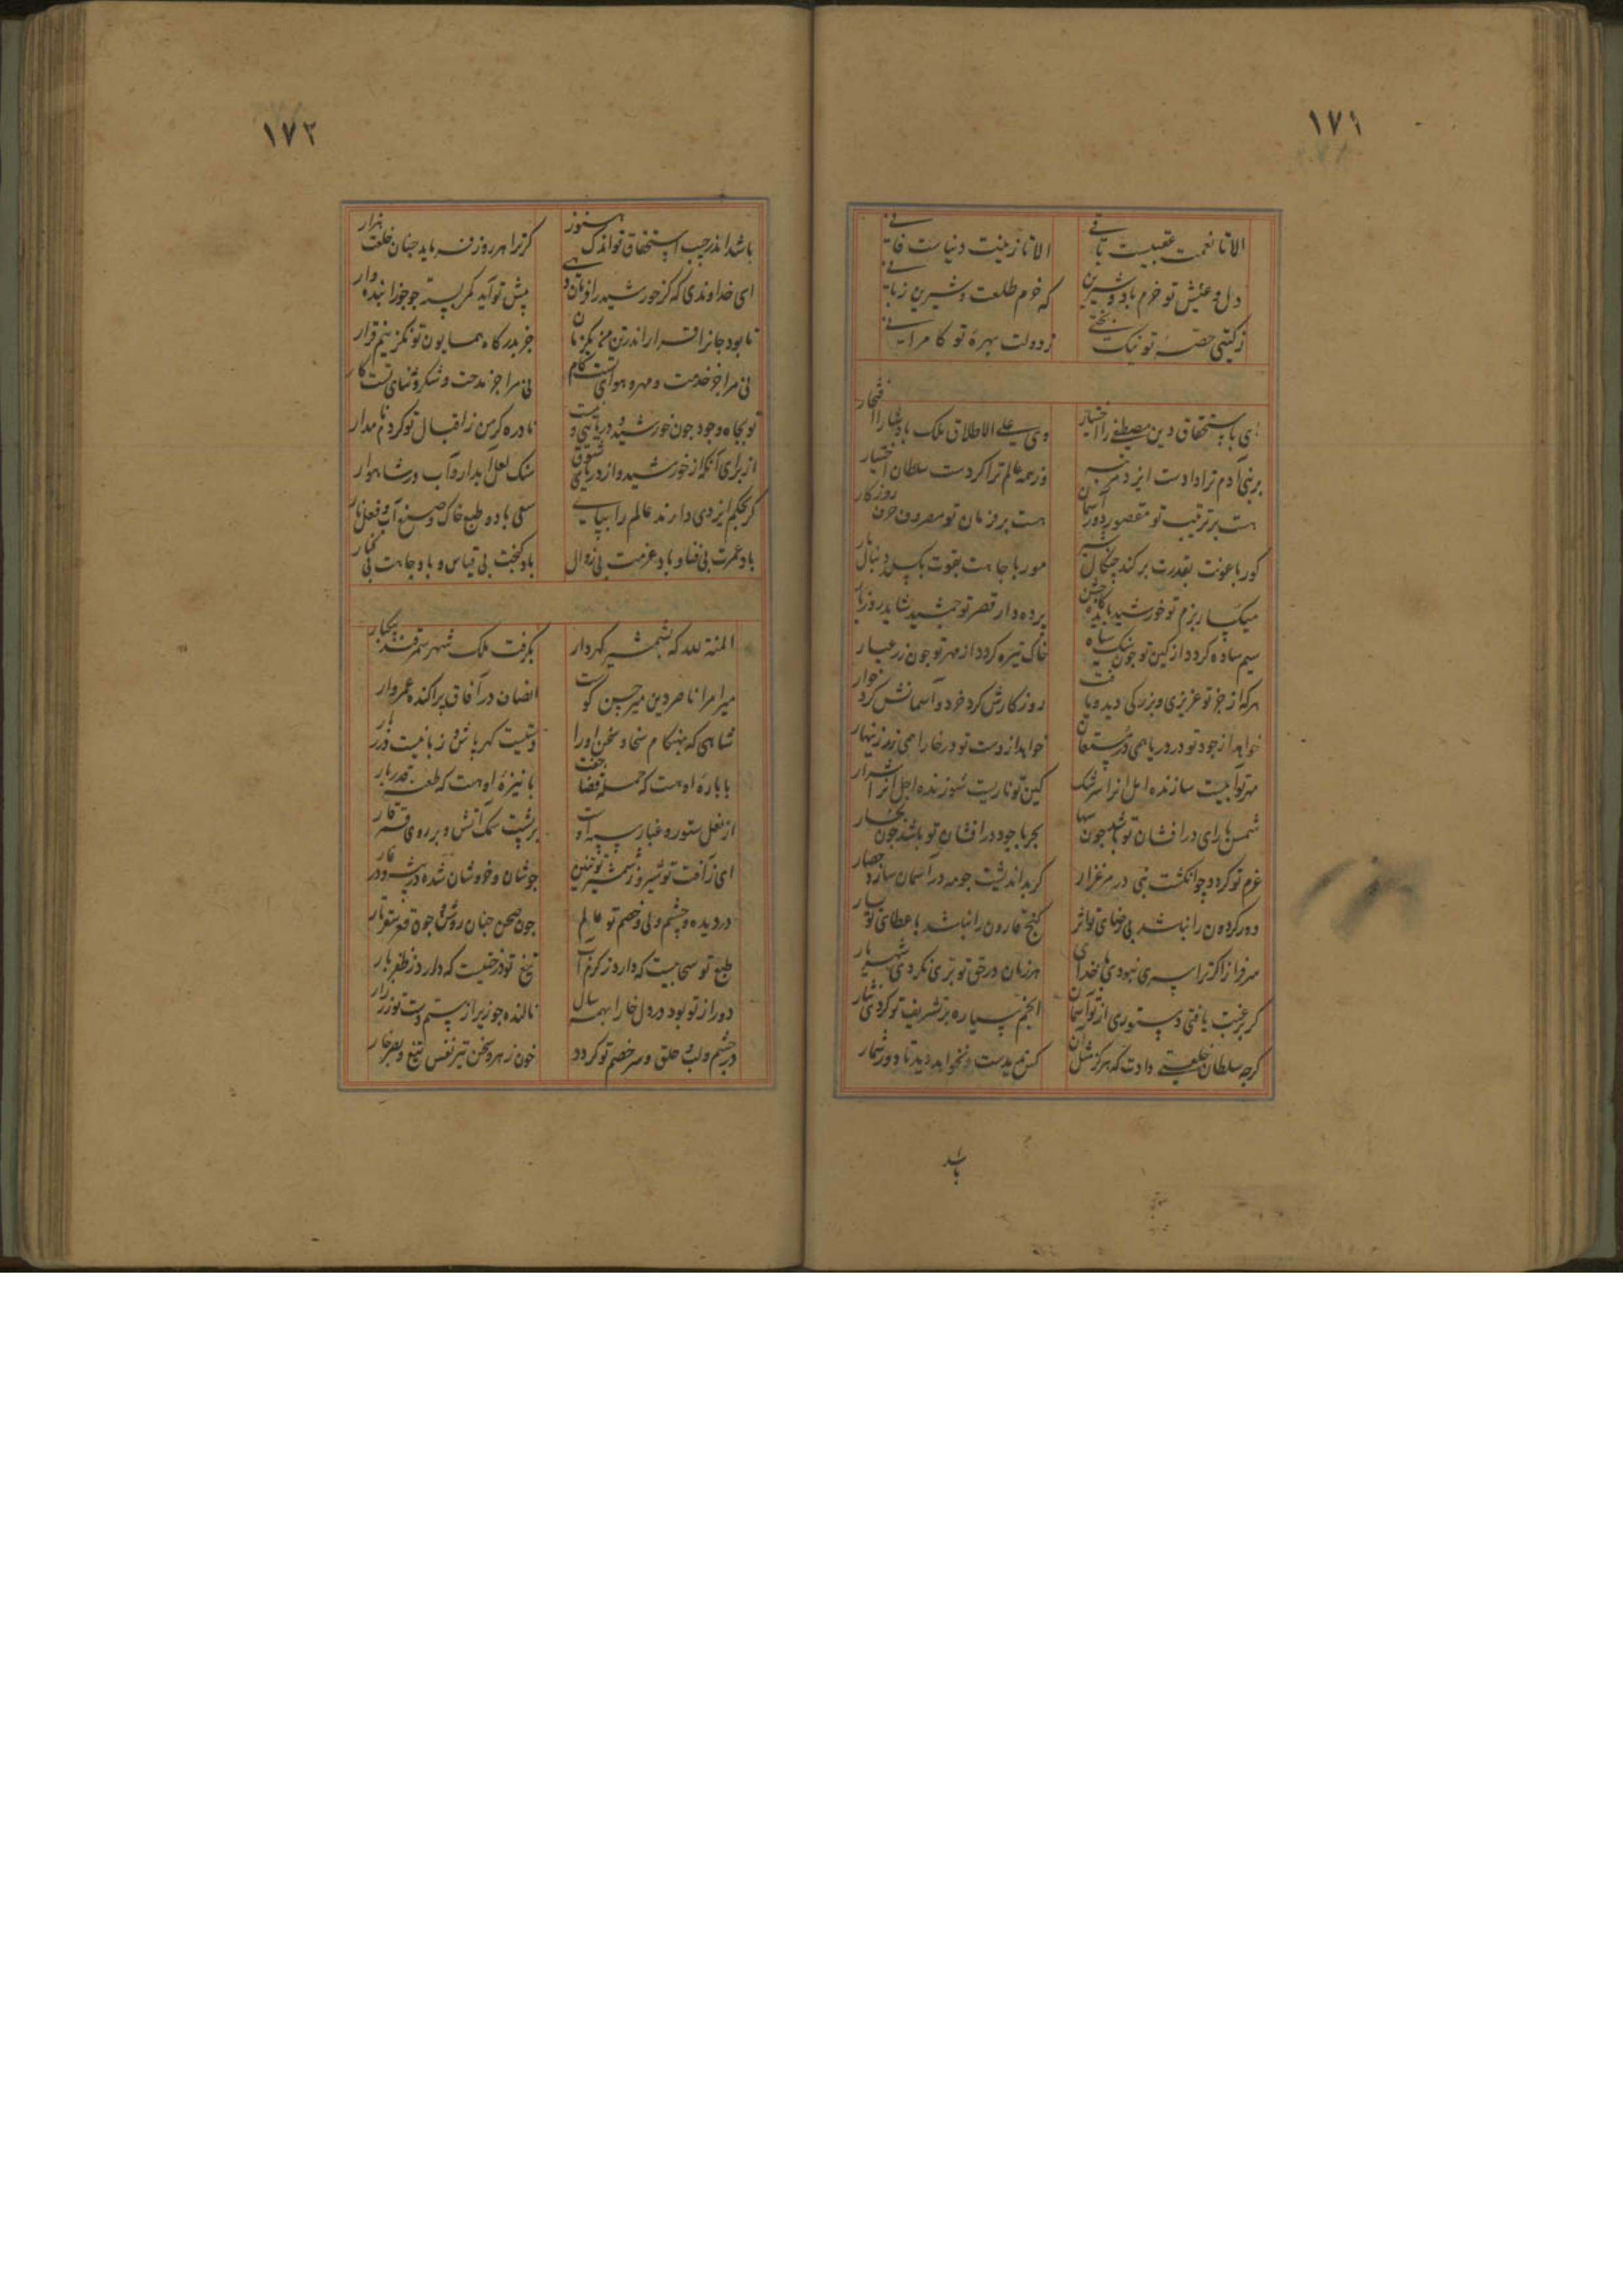 ۱۷۱
الا تا نعمت عقبیست باقی الا تا زینت دنیاست فانی
دل و عیش تو خرم باد و شیرین که خرم طلعت و شیرین زبانی
ز کیتی حصهٔ تو نیک بختی ز دولت بهرهٔ تو کامرانی
ای باستحقاق دین مصطفی را اختیار وی علی الاطلاق ملک پادشا را افتخار
بر بنی آدم ترا دادست ایزد وز همه عالم ترا کردست سلطان اختیار
هست بر ترتیب تو مقصور دور آسمان هست بر فرمان تو مصروف روزکار
کور با عونت بقدرت برکند چنکال شیر مور با جاهت بقوت بکسلد دنبال مار
میکسار بزم تو خورشید باید پرده دار قصر تو جمشید شاید روز بار
سیم ساده کردد از کین تو جون سنک سیاه خاک تیره کردد از مهر تو جون زر عیار
هرکه از جز تو عزیزی و بزرکی دید و یافت روزکارش کرد خرد و آسمانش کرد خوار
خواهد از جود تو در دریا همی در خواهد از دست تو در خارا همی زر زینهار
مهر تو آبیست سازنده امل انرا سرشک کین تو ناریست سوزنده اجل انرا شرار
شمس با رای درافشان تو باشد جون سها بحر با جود درافشان تو باشد جون بخار
عزم تو کردد جو انکشت نبی در مرغزار کر بداندیشت جو مه در آسمان سازد حصار
دور کردون را نباشد بی رضای تو اثر کنج قارون را نباشد با عطای تو یسار
سرفراز اکر ترا بسری نبودی با خدای هر زمان در حق تو بری نکردی شهریار
کر برغبت یافتی دستوری از تو آسمان انجم سیاره بر تشریف تو کردی نثار
کرجه سلطان خلعتی دادت که هرکز مثل آن کس ندیدست و نخواهد دید تا دور شمار
باشد
۱۷۲
باشد اندر جیب استحقاق تو اندک هنوز کر ترا هر روز فرماید جنان خلعت هزار
ای خداوندی که کر خورشید را فرمان دهی پیش تو آید کمر بسته جو جوزا بنده وار
تا بود جانرا قرار اندر تن من یکزمان جز بدرکاه همایون تو نکزینم قرار
نی مرا جز خدمت و مهر و هوای تست کام نی مرا جز مدحت و شکر و ثنای تست کار
تو بجاه و جود جون خورشید و دریائی و نیست نادره کر من ز اقبال تو کردم نامدار
از برای آنکه از خورشید و از دریا همی سنک لعل آبدار و آب در شاهوار
کر بحکم ایزدی دارند عالم را بپای سعی باد و طبع خاک و صنع آب و فعل نار
باد عمرت بی فنا و باد عزمت بی زوال باد بختت بی قیاس و باد جاهت بی کنار
المنة لله که بشمشیر کهردار بکرفت ملک شهر سمرقند بیکبار
میر امرا ناصر دین میر حسین کوست انصاف در آفاق پراکنده عمروار
شاهی که بهنکام سخا و سخن او را دستیست کهرپاش و زبانیست دربار
با بارهٔ او هست که حمله قضا جفت با نیزهٔ او هست که طعنه قدر یار
از نعل ستور و غبار سپه اوست بر پشت سمک آتش و بر روی قمر قار
ای ز آفت تو شیر و ز شمشیر تو تنین جوشان و خروشان شده در بیشه و در غار
در دیده و چشم ولی و خصم تو عالم جون صحن جنان روشن و جون قعر سقر تار
طبع تو سحابیست که دارد ز کرم آب تیغ تو درختیست که دارد ز ظفر بار
دور از تو بود در دل خارا همه سال نالنده جو زیر از ستم دست تو زر زار
در چشم و لب و حلق و سر خصم تو کردد خون زهر و سخن تیر نفس تیغ و بصر خار